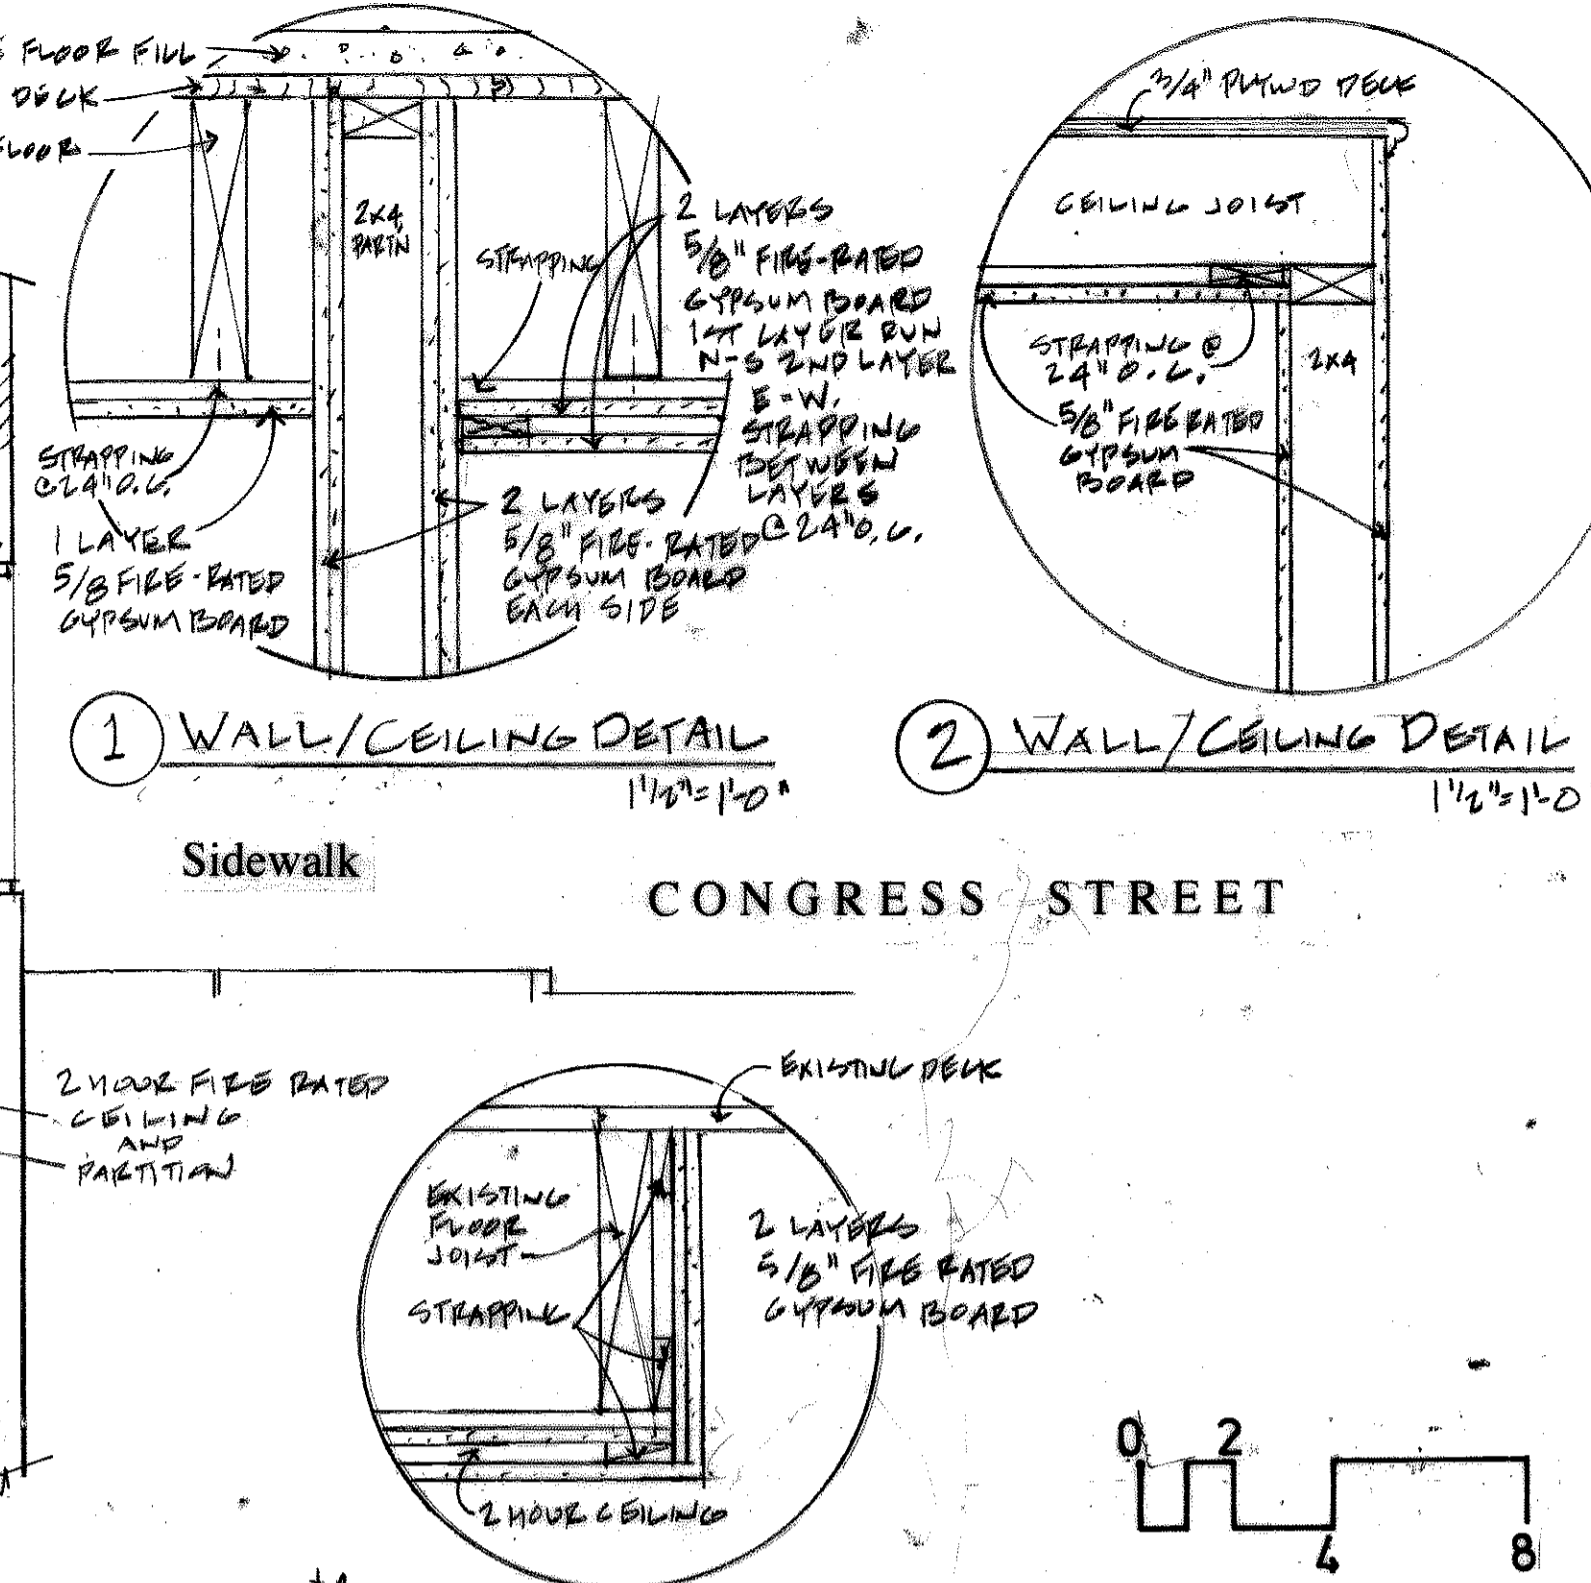 FLOOR FILL
DECK
FLOOR
2X4
PARTN
STRAPPING
2 LAYERS
5/8" FIRE-RATED
GYPSUM BOARD
1ST LAYER RUN
N-S 2ND LAYER
E-W.
STRAPPING
BETWEEN
LAYERS
@ 24" O.C.
STRAPPING
@ 24" O.C.
1 LAYER
5/8 FIRE-RATED
GYPSUM BOARD
2 LAYERS
5/8" FIRE-RATED
GYPSUM BOARD
EACH SIDE
1 WALL/CEILING DETAIL
1 1/2"=1'-0"
3/4" PLYWD DECK
CEILING JOIST
STRAPPING @
24" O.C.
2X4
5/8" FIRE RATED
GYPSUM
BOARD
2 WALL/CEILING DETAIL
1 1/2"=1'-0
Sidewalk
CONGRESS STREET
2 HOUR FIRE RATED
CEILING
AND
PARTITION
EXISTING DECK
EXISTING
FLOOR
JOIST
STRAPPING
2 LAYERS
5/8" FIRE RATED
GYPSUM BOARD
2 HOUR CEILING
0 2
4 8